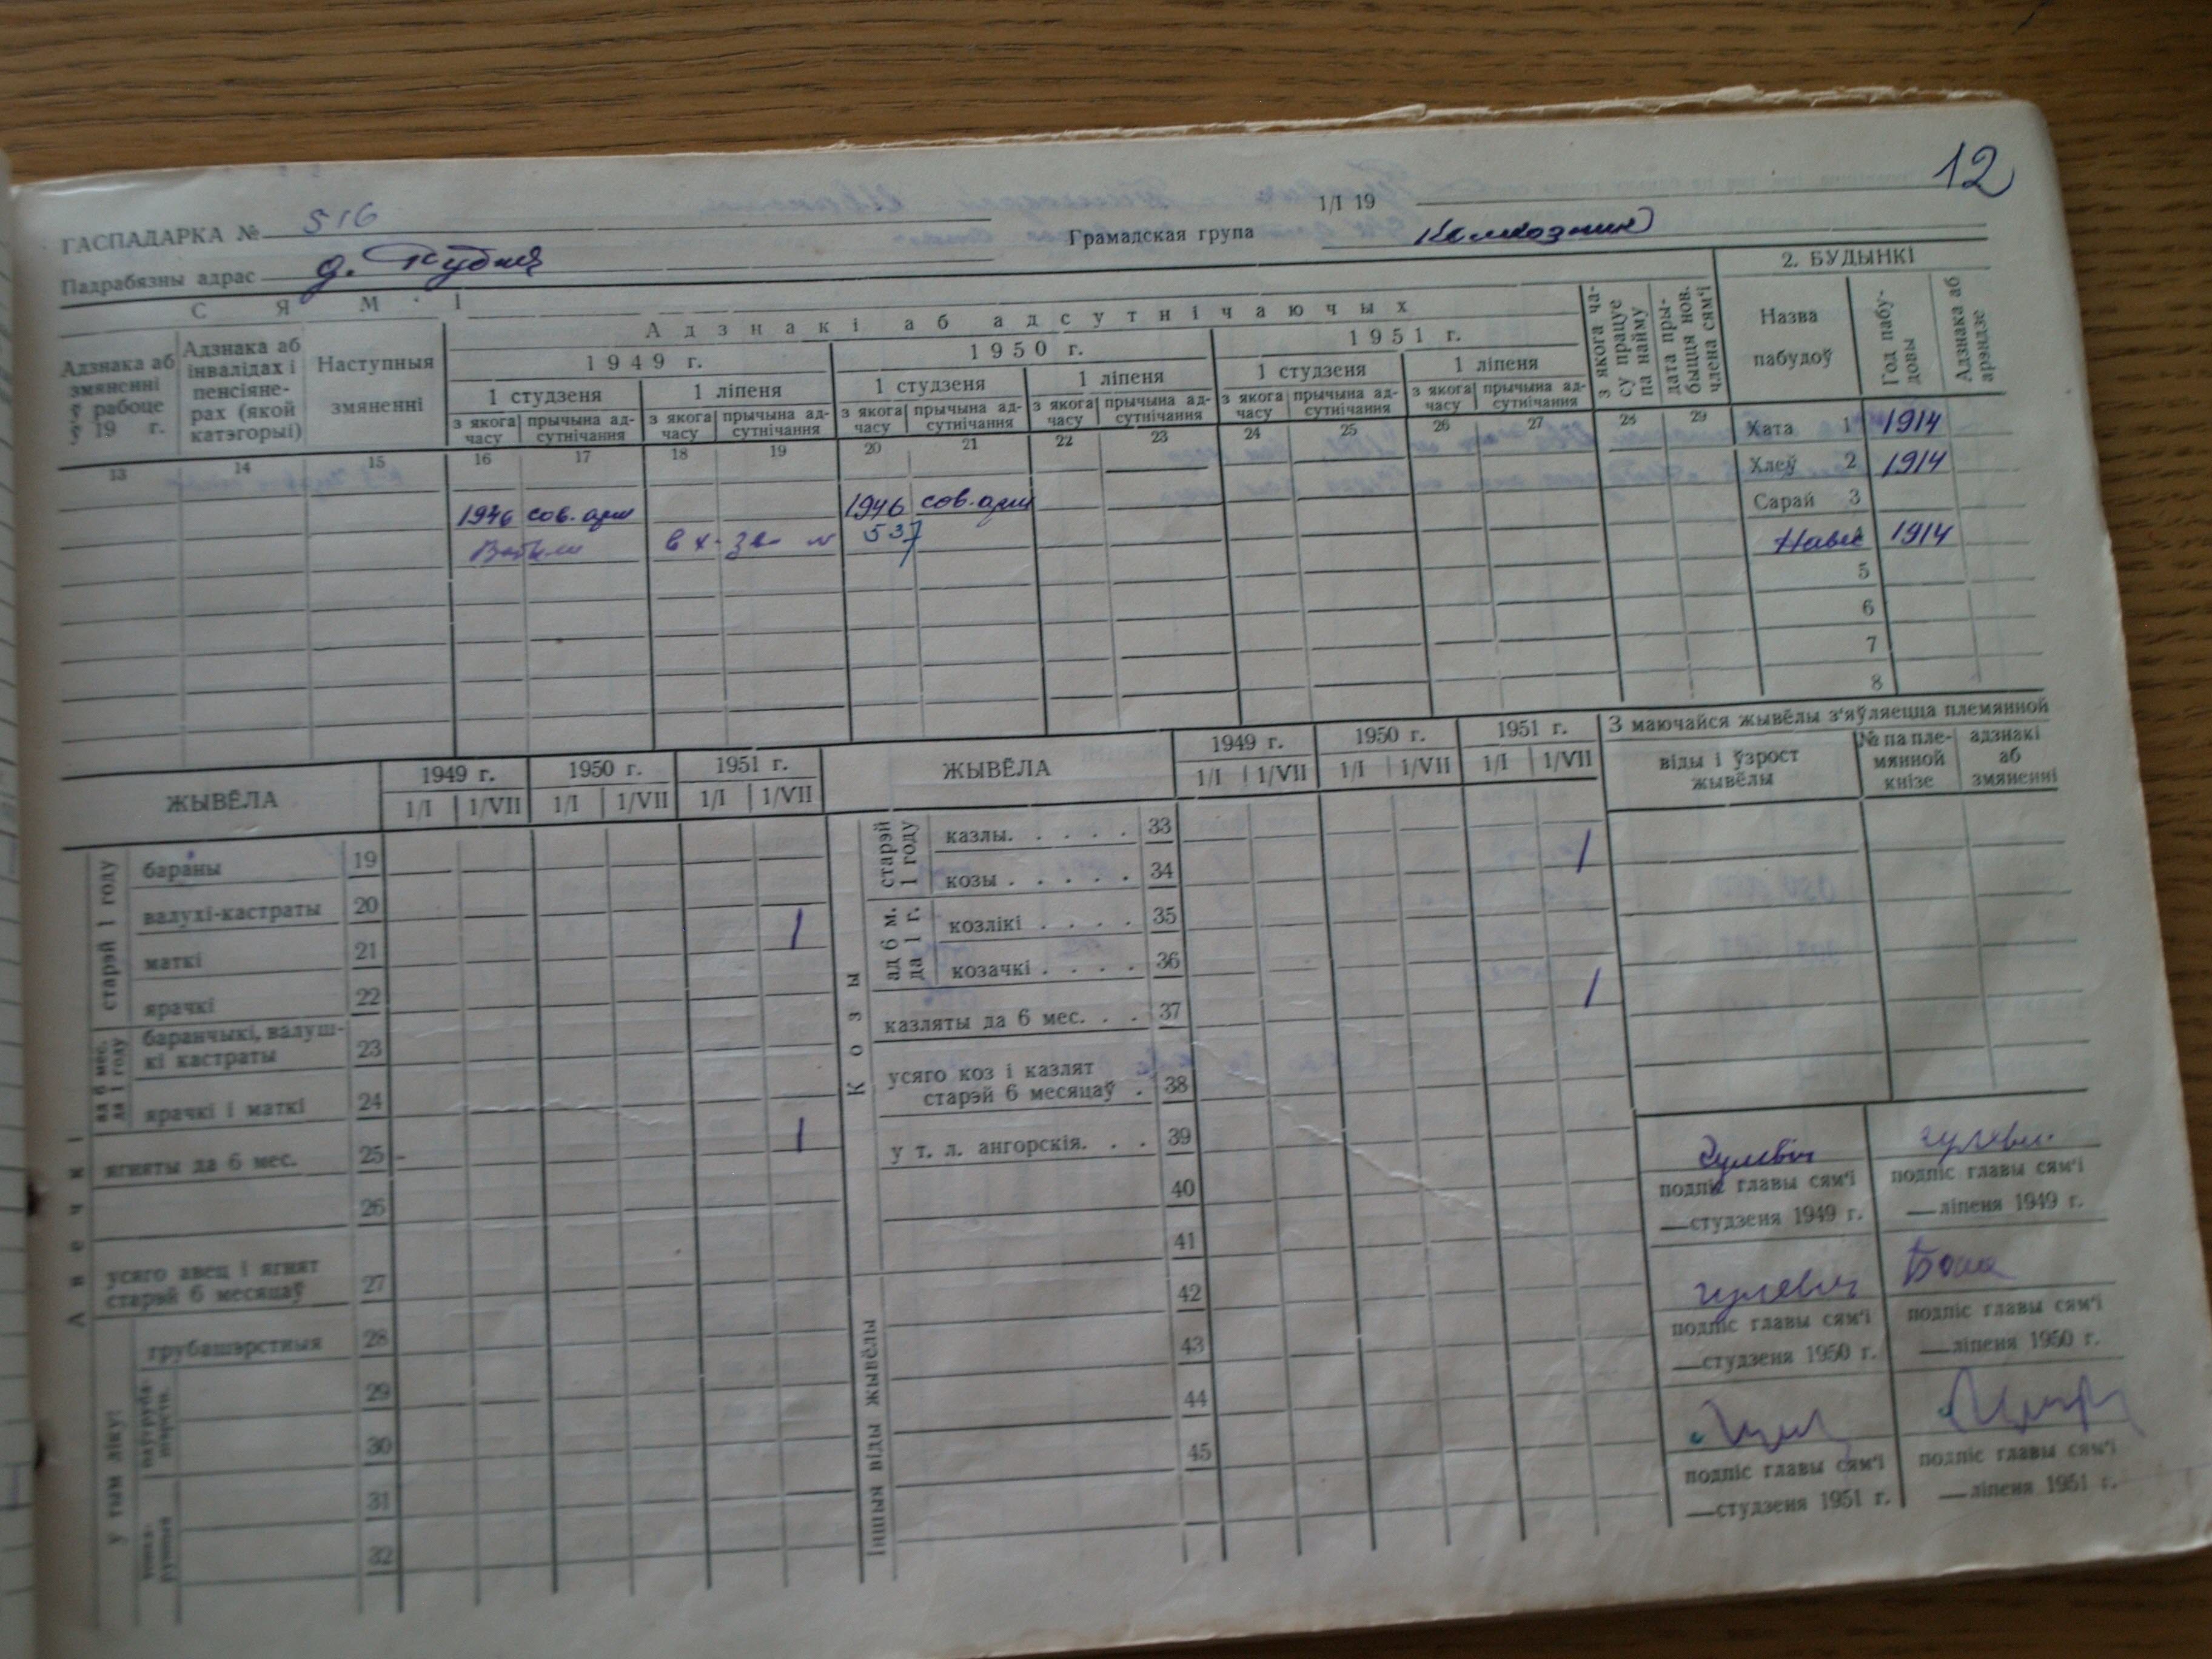 12
ГАСПАДАРКА № 516
1/I 19
Грамадская група
Падрабязны адрас д.
С Я М ' І
2. БУДЫНКІ
Адзнака аб змяненні ў рабоце ў 19 г.
Адзнака аб інвалідах і пенсіяне-рах (якой катэгорыі)
Наступныя змяненні
Адзнакі аб адсутнічаючых
1949 г. 1950 г. 1951 г.
1 студзеня 1 ліпеня 1 студзеня 1 ліпеня 1 студзеня 1 ліпеня
з якога часу прычына ад-сутнічання з якога часу прычына ад-сутнічання з якога часу прычына ад-сутнічання з якога часу прычына ад-сутнічання з якога часу прычына ад-сутнічання з якога часу прычына ад-сутнічання
з якога ча-су працуе па найму
дата пры-быцця нов. члена сям'і
Назва пабудоў
Год пабу-довы
Адзнака аб арэндзе
13 14 15 16 17 18 19 20 21 22 23 24 25 26 27 28 29
Хата 1 1914
Хлеў 2 1914
1946 сов. арм 1946 сов. арм
Сарай 3
537
1914
5
6
7
8
ЖЫВЁЛА
1949 г. 1950 г. 1951 г.
1/I 1/VII 1/I 1/VII 1/I 1/VII
Авечкі
старэй 1 году
бараны 19
валухі-кастраты 20
маткі 21 1
ярачкі 22
ад 6 мес. да 1 году
баранчыкі, валуш-
кі кастраты 23
ярачкі і маткі 24
ягняты да 6 мес. 25 1
26
усяго авец і ягнят
старэй 6 месяцаў 27
у тым ліку:
грубашэрстныя 28
29
30
31
32
ЖЫВЁЛА
1949 г. 1950 г. 1951 г.
1/I 1/VII 1/I 1/VII 1/I 1/VII
Козы
старэй 1 году
казлы. . . . . 33
козы . . . . . 34 1
ад 6 м. да 1 г.
козлікі . . . . 35
козачкі . . . . 36
казляты да 6 мес. . . 37 1
усяго коз і казлят
старэй 6 месяцаў . 38
у т. л. ангорскія. . . 39
40
41
Іншыя віды жывёлы
42
43
44
45
З маючайся жывёлы з'яўляецца племянной
віды і ўзрост жывёлы
№ па пле-мянной кнізе
адзнакі аб змяненні
Гулевіч
подпіс главы сям'і
—студзеня 1949 г.
подпіс главы сям'і
—ліпеня 1949 г.
гулевич
подпіс главы сям'і
—студзеня 1950 г.
подпіс главы сям'і
—ліпеня 1950 г.
подпіс главы сям'і
—студзеня 1951 г.
подпіс главы сям'і
—ліпеня 1951 г.